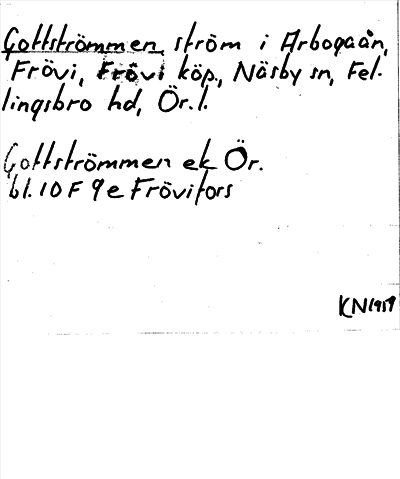 Gottströmmen, ström i Arbogaån,
Frövi, Frövi köp, Näsby sn, Fel-
lingsbro hd, Ör. l.
Gottströmmen ek Ör.
bl. 10 F 9 e Frövifors
KN 1959